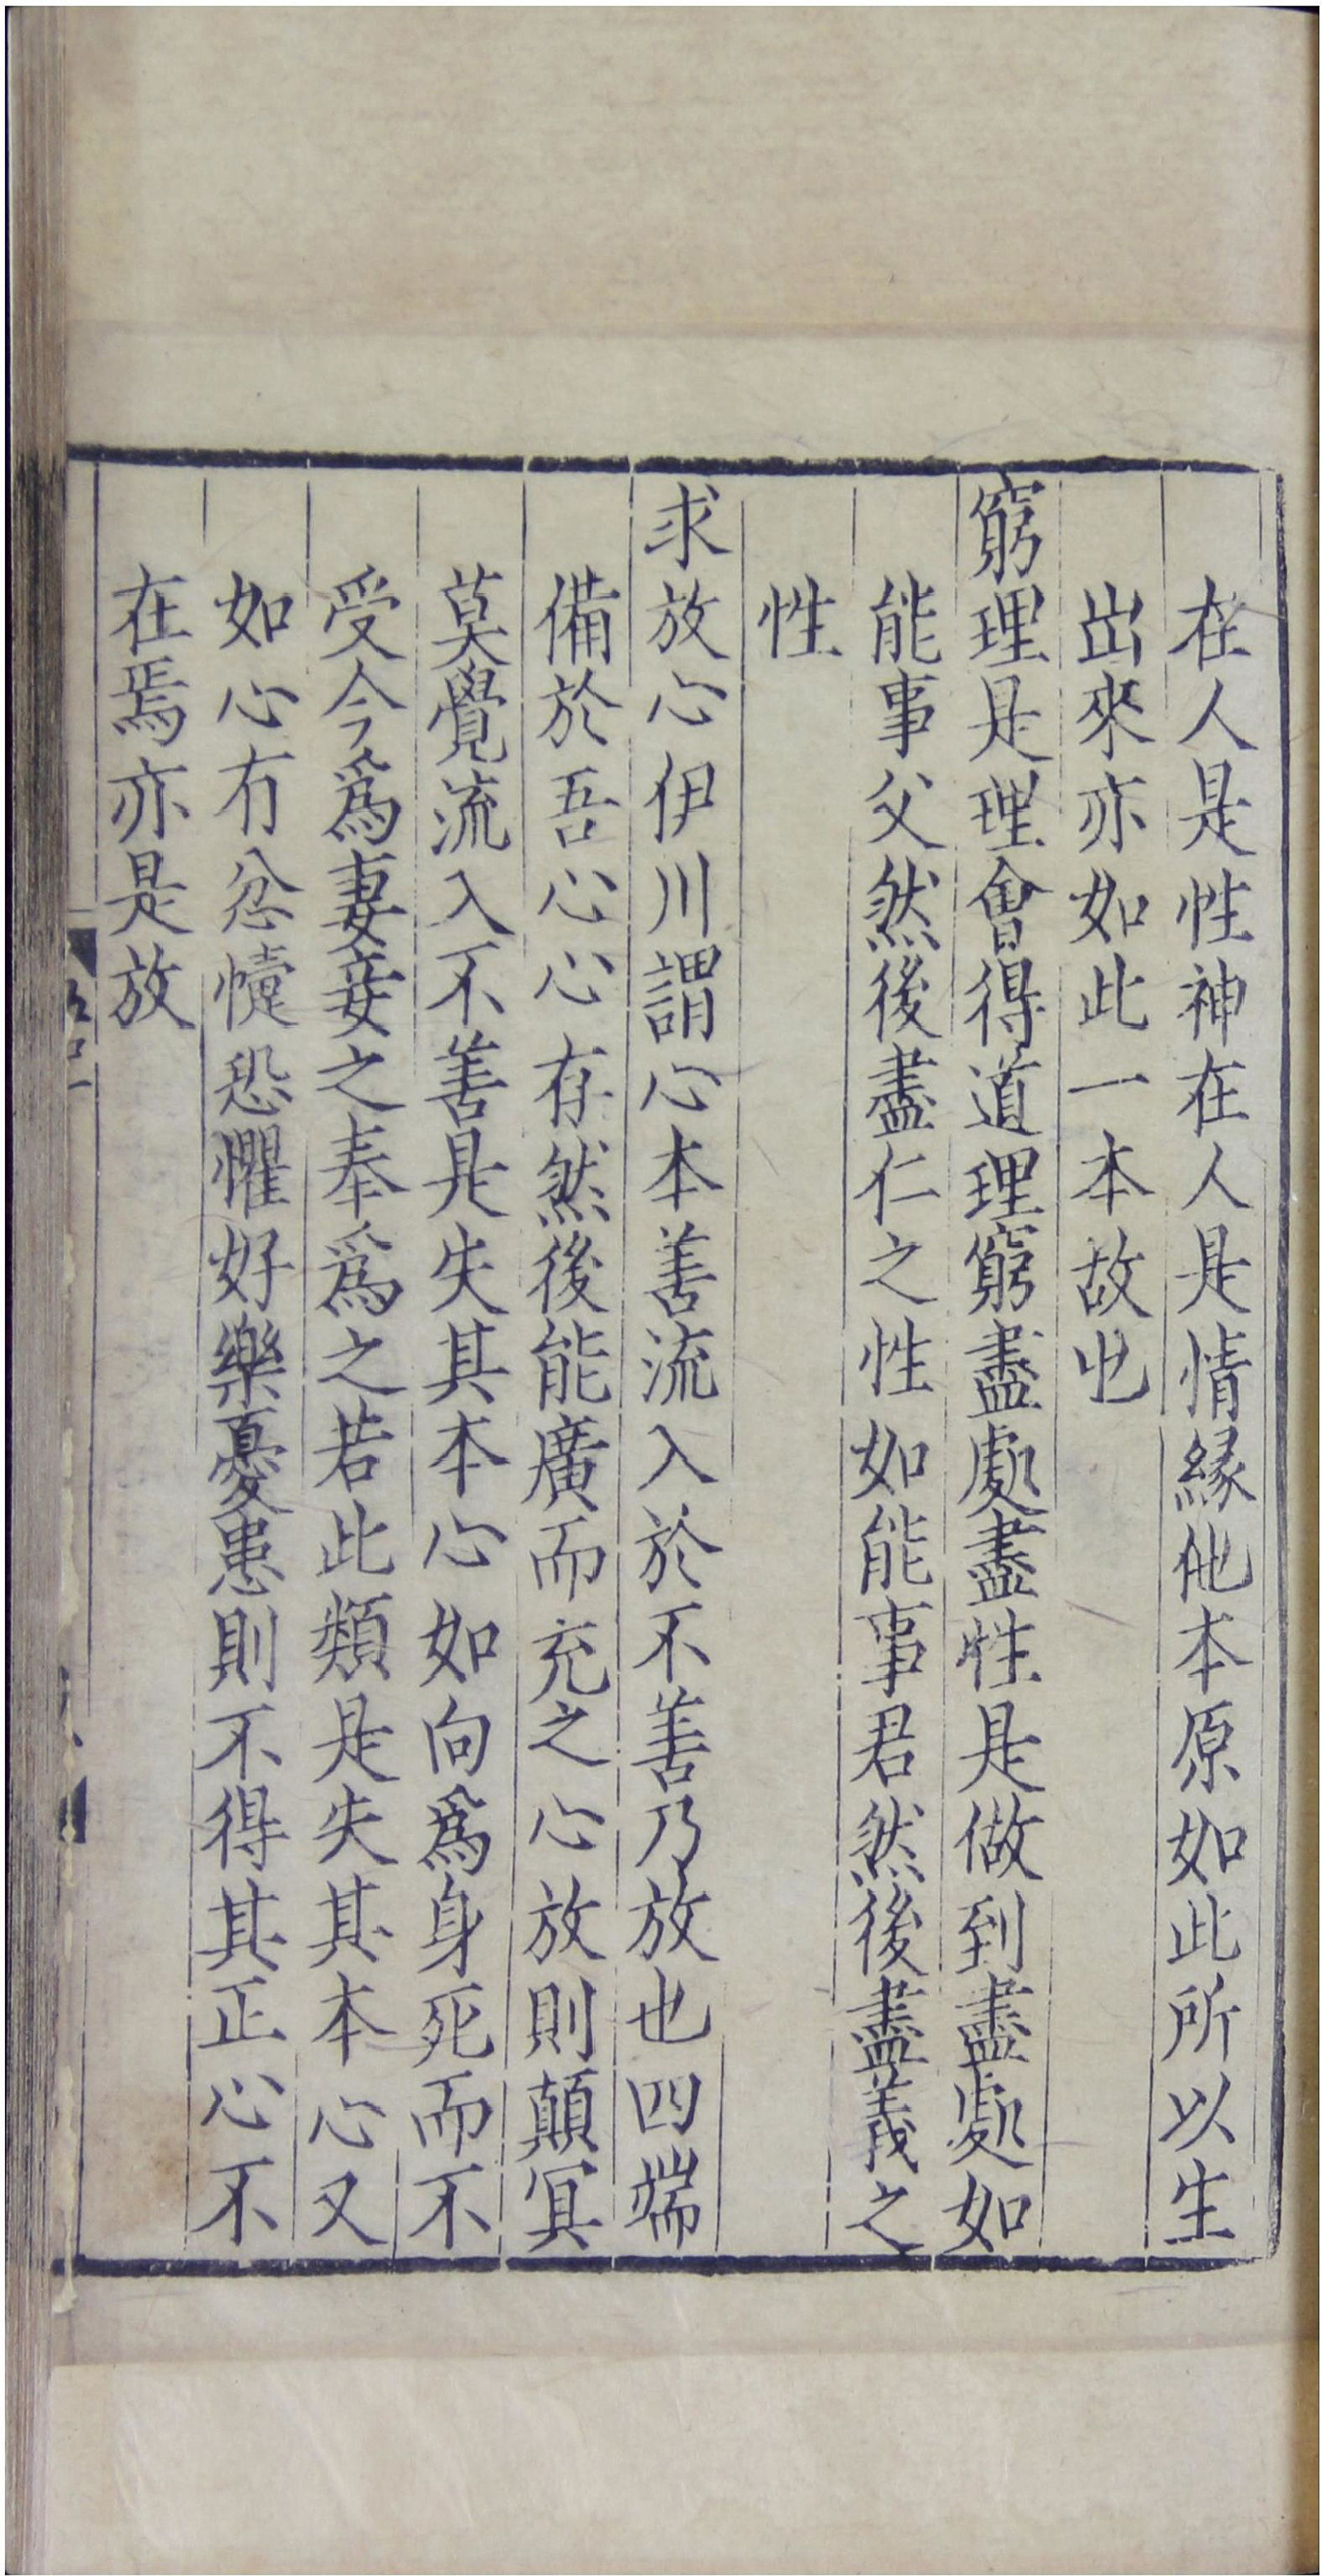 在人是性神在人是情緣他本原如此所以生
出來亦如此一本故也
窮理是理會得道理窮盡處盡性是做到盡處如
能事父然後盡仁之性如能事君然後盡義之
性
求放心伊川謂心本善流入於不善乃放也四端
備於吾心心存然後能廣而充之心放則顛冥
莫覺流入不善是失其本心如向爲身死而不
受今爲妻妾之奉爲之若此類是失其本心又
如心有忿懥恐懼好樂憂患則不得其正心不
在焉亦是放